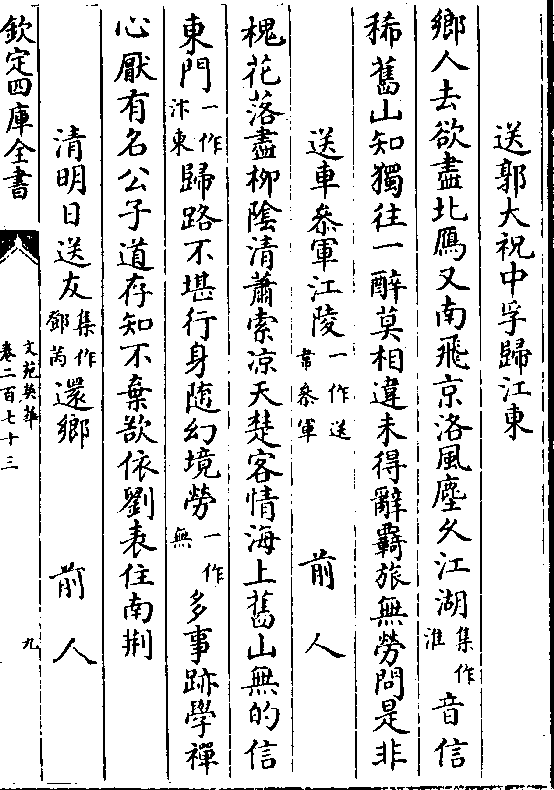 送郭大祝中孚歸江東
鄉人去欲盡北鴈又南飛京洛風塵久江湖集作淮音信
稀舊山知獨往一醉莫相違未得辭羇旅無勞問是非
送車叅軍江陵一作送韋叅軍 前人
槐花落盡柳陰清蕭索凉天楚客情海上舊山無的信
東門一作汴東歸路不堪行身隨幻境勞一作無多事跡學禪
心厭有名公子道存知不棄欲依劉表住南荆
清明日送友集作鄧芮還鄉 前人
欽定四庫全書
文苑英華
卷二百七十三
九